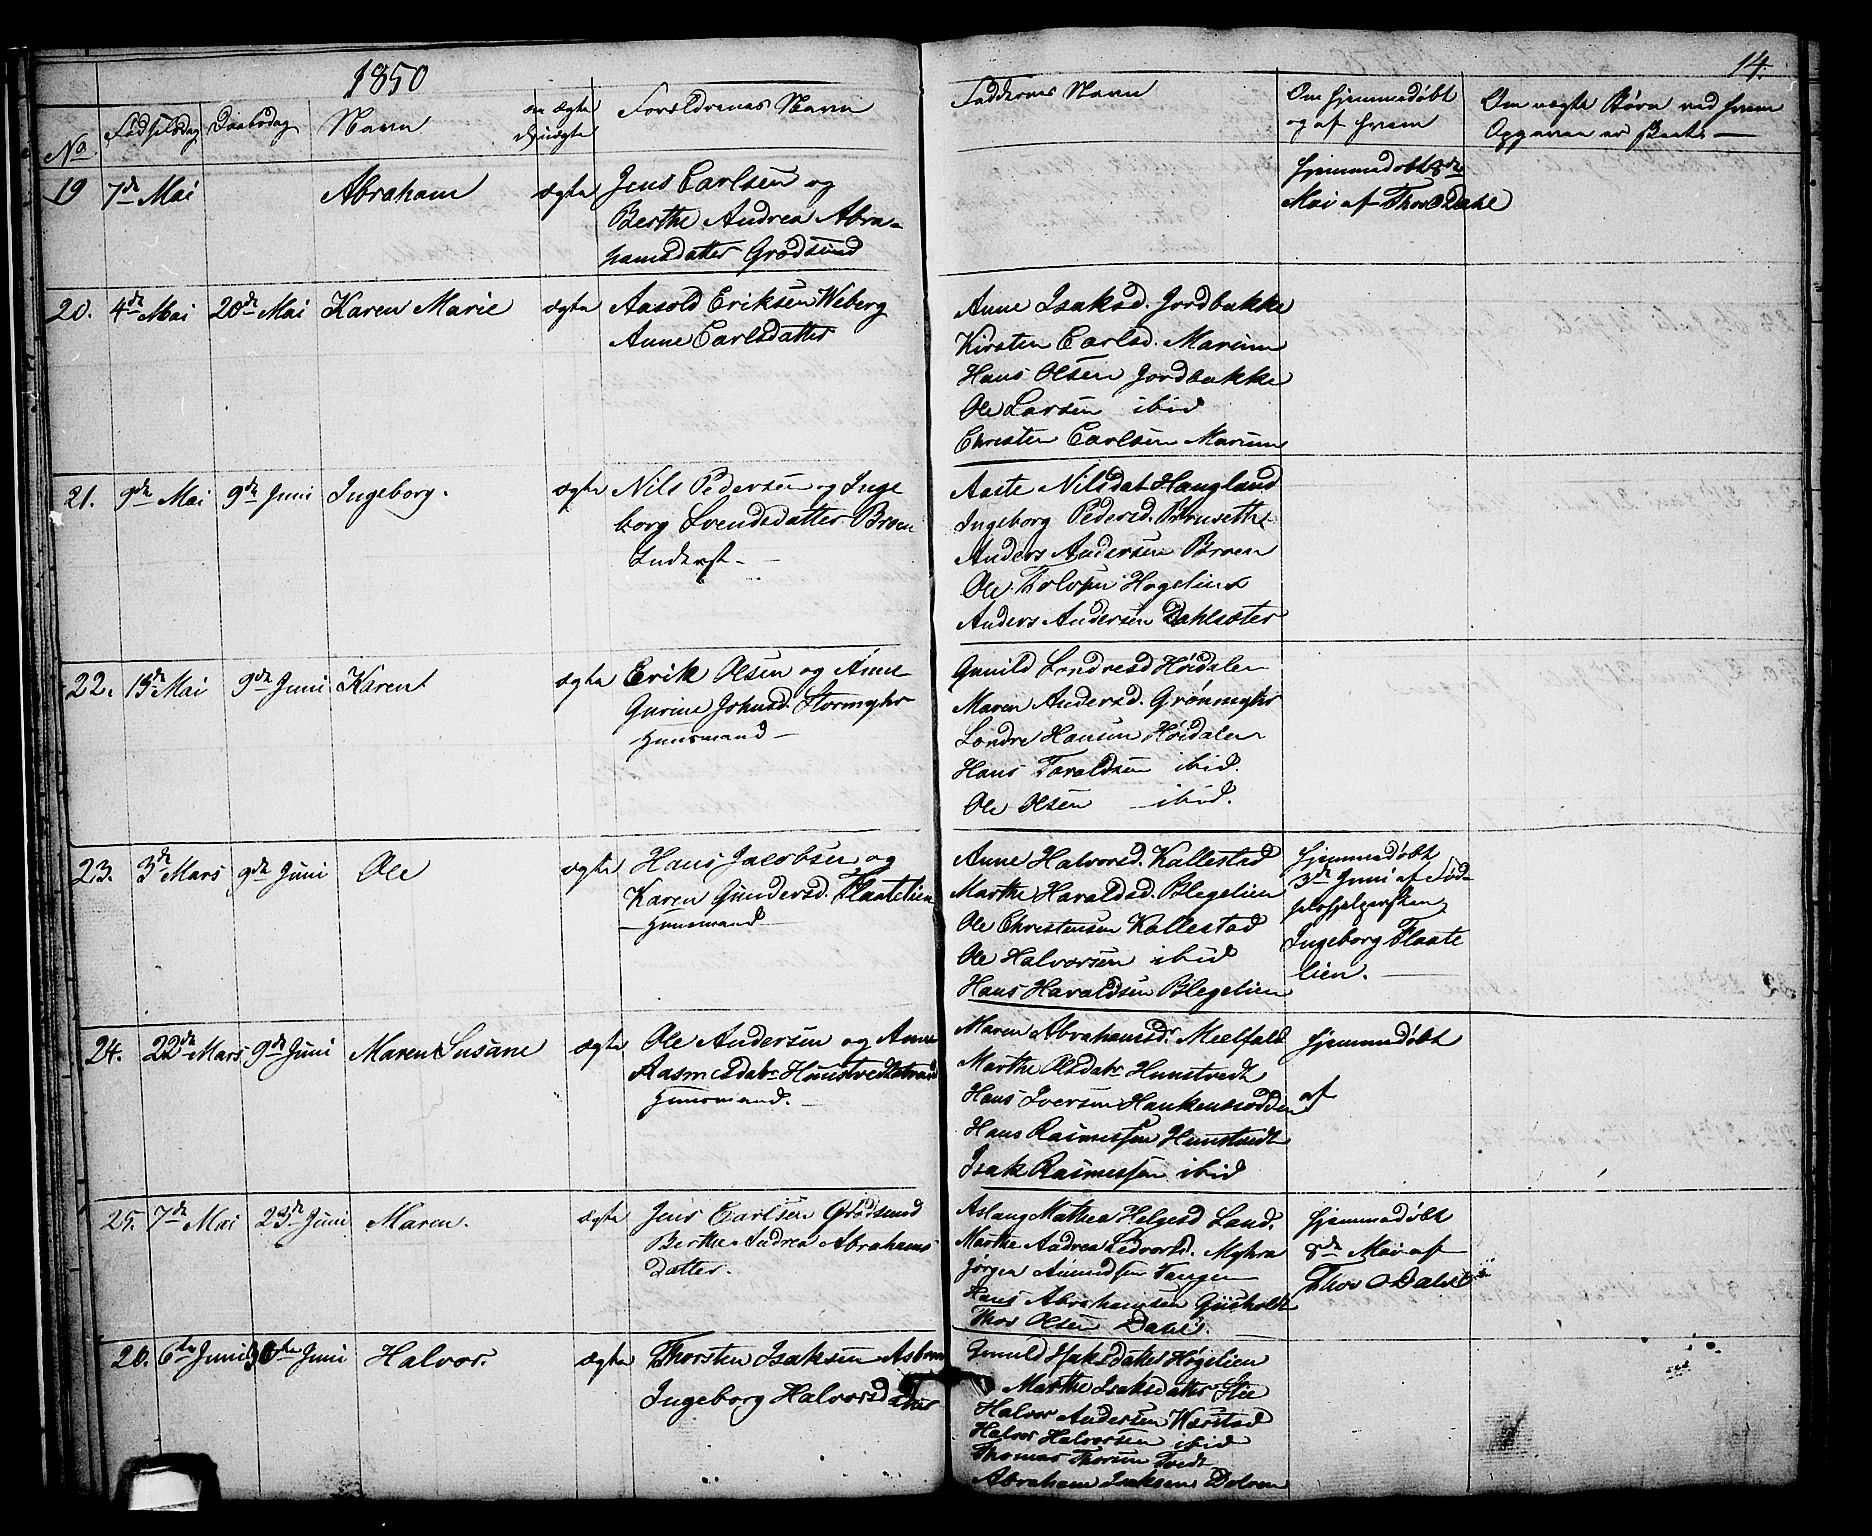 1850
14.
No
Fødselsdag
Daabsdag
Navn
om ægte
Forældrenes Navn
Faddernes Navn
Om hjemmedøbt
og af hvem
Om uægte Børn ved hvem
Opgaven er
19 7de Mai Abraham ægte Jens Carlsen og
Berthe Andrea Abra-
hamsdatter Grødsund
Hjemmedøbt 8de
Mai af Thor O Dahl
20. 4de Mai 20de Mai Karen Marie ægte Aasold Eriksen Weberg
Anne Carlsdatter
Anne Isaksd. Jordbække
Kirsten Carlsd. Marum
Hans Olsen Jordbække
Ole Larsen ibid
Christen Carlsen Marum
21. 9de Mai 9de Juni Ingeborg. ægte Nils Pedersen og Inge
borg Svendsdatter Broen
Inderst -
Aaste Nilsdat Haugland
Ingeborg Pedersd. Bruseth
Anders Andersen Broen
Ole Tolvsen Høgelien
Anders Andersen Dahlsæter
22. 13de Mai 9de Juni Karen ægte Erik Olsen og Anne
Gurine Johnsd. Stormyhr
Huusmand -
Gunild Londresd Høidalen
Maren Andersd. Grønmyhr
Londre Hansen Høidalen
Hans Taraldsen ibid.
Ole Olsen - ibid.
23. 3de Mars 9de Juni Ole ægte Hans Jacobsen og
Karen Gundersd. Flaatelien
- Huusmand -
Anne Halvorsd. Kallestad
Marthe Haraldsd. Blegelien
Ole Christensen Kallestad
Ole Halvorsen ibid
Hans Haraldsen Blegelien
Hjemmedøbt
3de Juni af Fød-
selshjelpersken
Ingeborg Flaate
lien.
24. 22de Mars 9de Juni Maren Susane ægte Ole Andersen og Anne
Rasmusdatr Hunstvedt
Huusmand. -
Maren Abrahamsdr. Melfald
Marthe Olsdatr Hunstvedt
Hans Iversen Haukenesødden
Hans Rasmussen Hunstvedt
Isak Rasmussen ibid
Hjemmedøbt
af
25. 7de Mai 23de Juni Maren. ægte Jens Carlsen Grødsund
Berthe Andrea Abrahams
Datter.
Aslaug Mathea Helgesd Land.
Marthe Andrea Ledvorsd. Myhra
Jørgen Amundsen Tangen
Hans Abrahamsen Gusholt
Thor Olsen Dahl.
Hjemmedøbt
8de Mai af
Thor O Dahl
26. 6te Juni 30te Juni Halvor. ægte Thorsten Isaksen
Ingeborg Halvorsdatter
Gunild Isaksdatter Høgelien
Marthe Isaksdatter Lie
Halvor Andersen Wærstad
Halvor Halvorsen ibid
Thomas Thorsen Tvedt
Abraham Isaksen Dolven